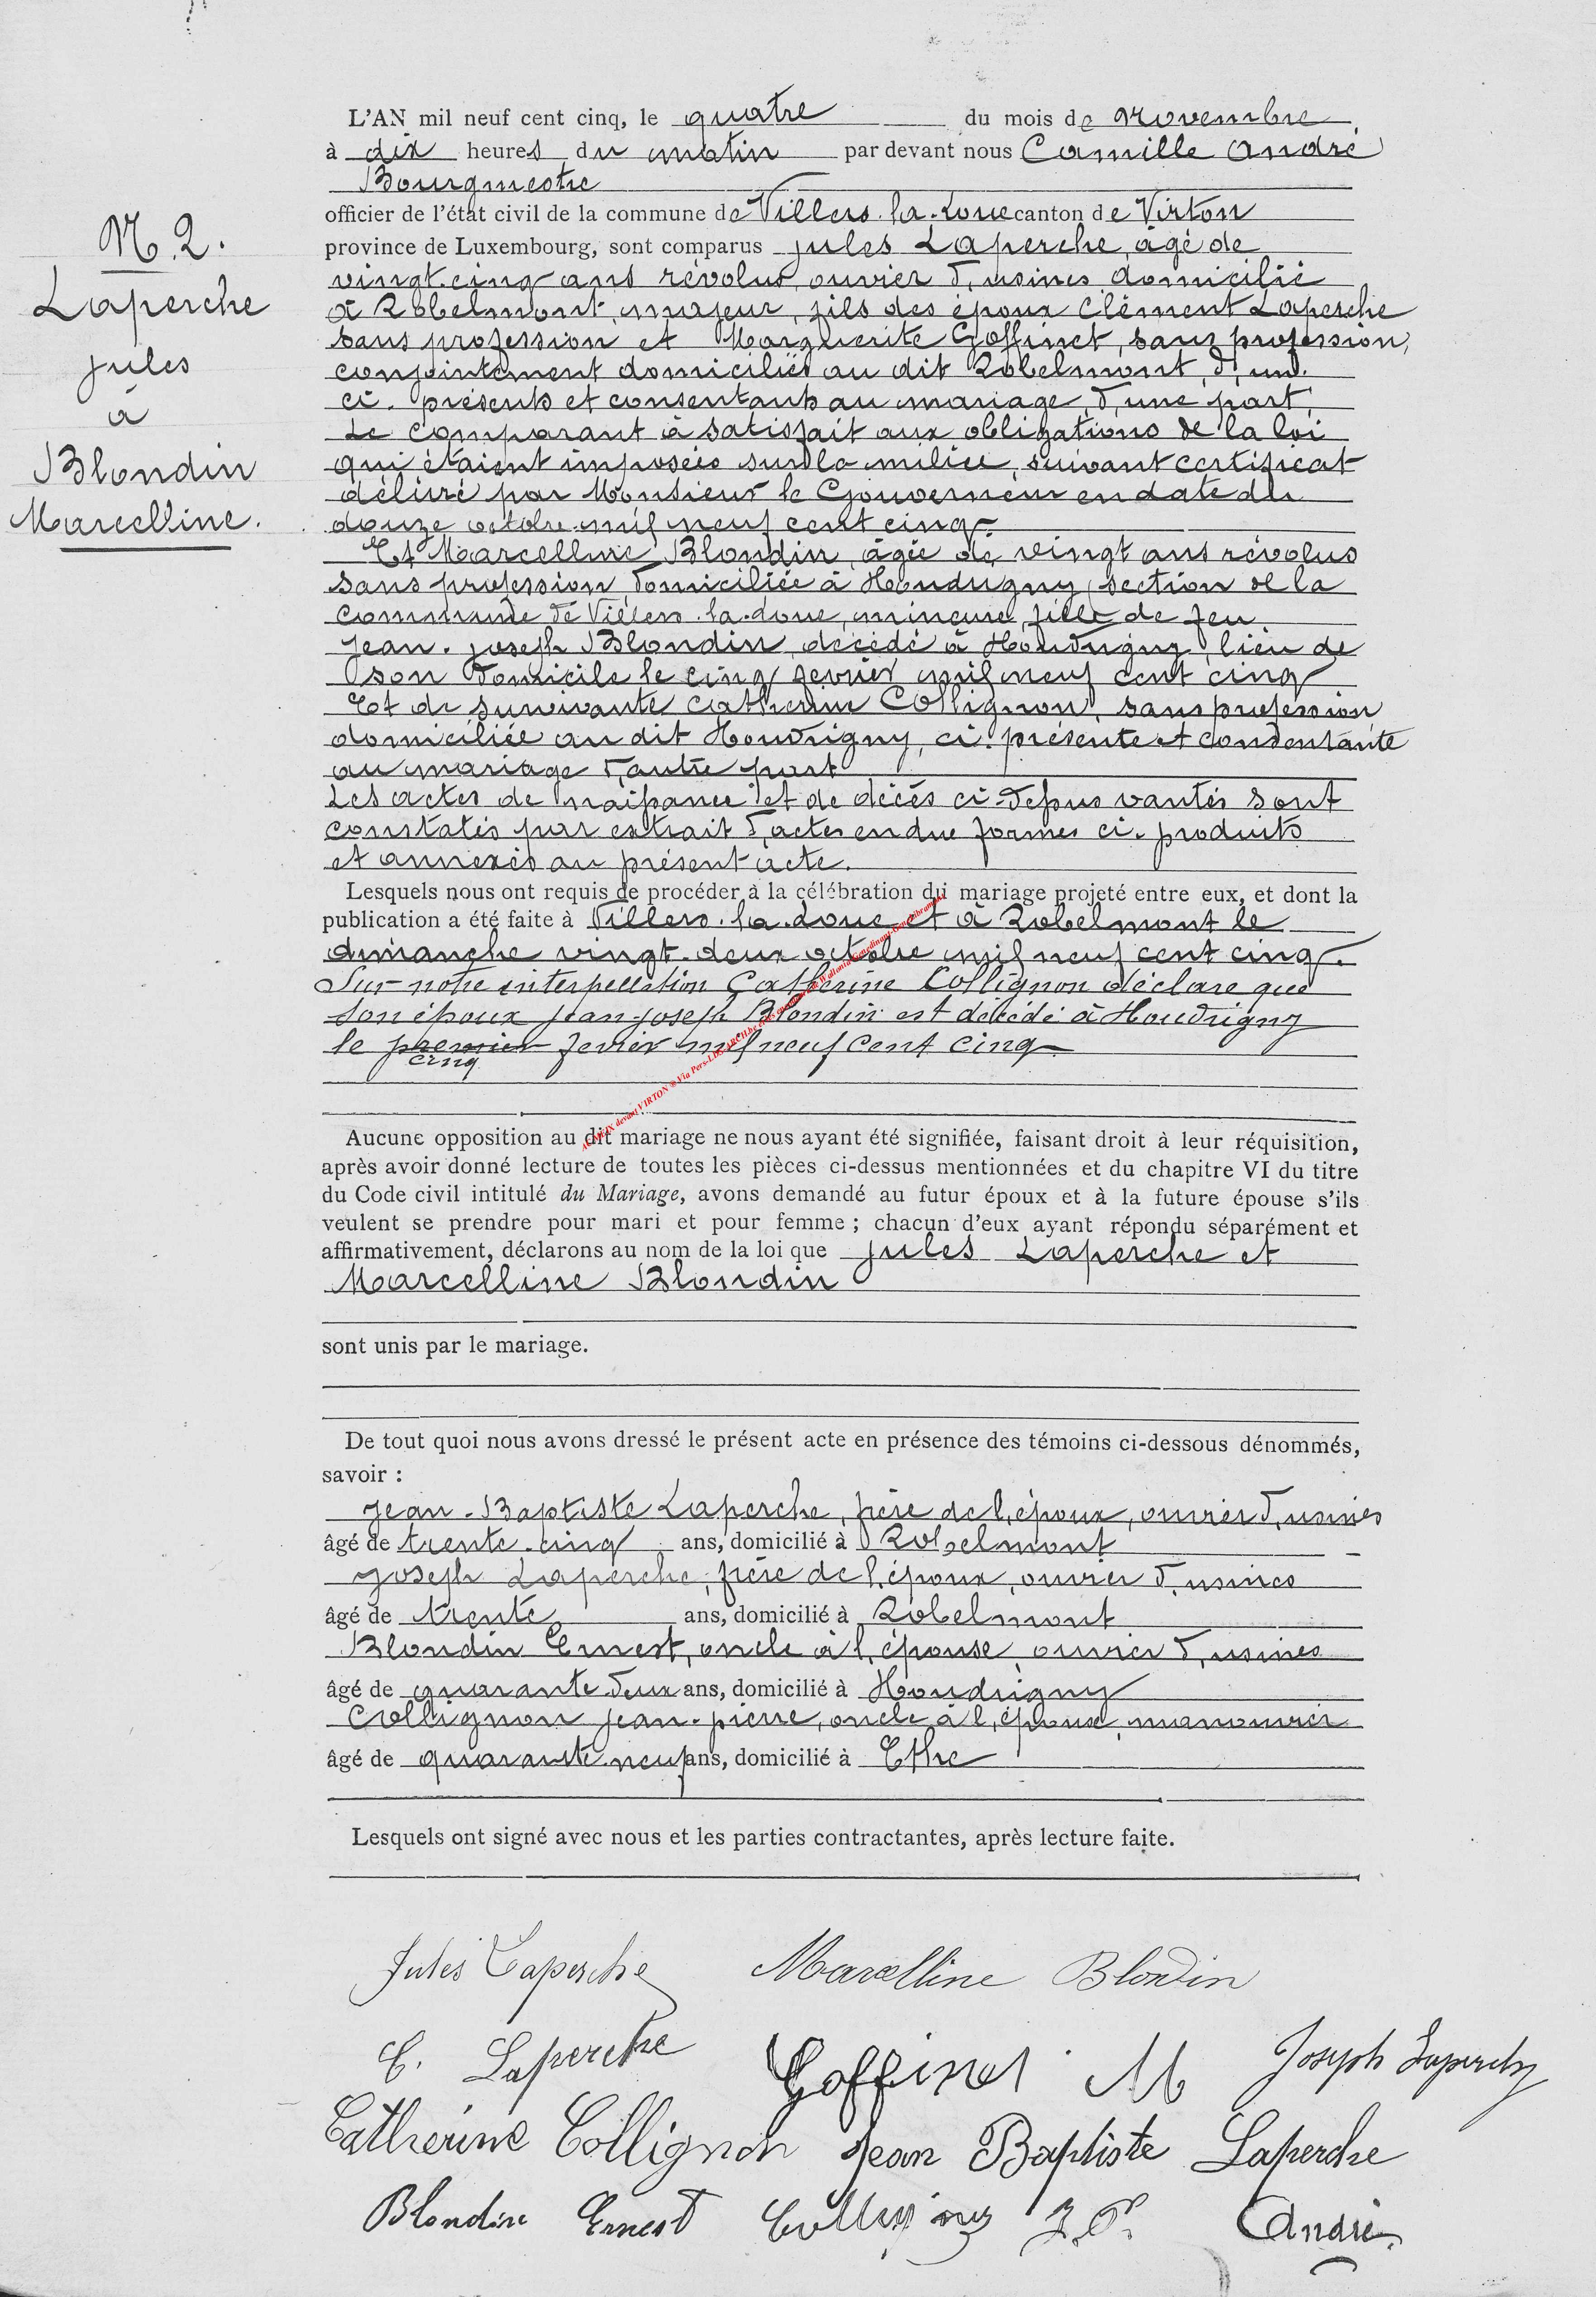 N. 2.
Laperche
Jules
à
Blondin
Marcelline.
L'AN mil neuf cent cinq, le quatre du mois de Novembre
à dix heures du matin par devant nous Camille André
Bourgmestre
officier de l'état civil de la commune de Villers-la-Loue canton de Virton
province de Luxembourg, sont comparus Jules Laperche, âgé de
vingt-cinq ans révolus, ouvrier d'usines, domicilié
à Robelmont, majeur, fils des époux Clément Laperche
sans profession et Marguerite Goffinet, sans profession,
conjointement domiciliés au dit Robelmont,
ci-présents et consentants au mariage d'une part.
Le comparant à satisfait aux obligations de la loi
qui étaient imposées sur la milice, suivant certificat
délivré par Monsieur le Gouverneur en date du
douze octobre mil neuf cent cinq
Et Marcelline Blondin, âgée de vingt ans révolus
sans profession, domiciliée à Houdrigny, section de la
commune de Villers-la-Loue, mineure, fille de feu
Jean-Joseph Blondin, décédé à Houdrigny, lieu de
son domicile le cinq fevrier mil neuf cent cinq
Et de survivante Catherine Collignon, sans profession
domiciliée au dit Houdrigny, ci-présente et consentante
au mariage d'autre part
Les actes de naissance et de décès ci-dessus vantés sont
constatés par extrait d'actes en due formes ci-produits
et annexés au présent acte.
Lesquels nous ont requis de procéder à la célébration du mariage projeté entre eux, et dont la
publication a été faite à Villers-la-Loue et à Robelmont le
dimanche vingt-deux octobre mil neuf cent cinq.
Sur notre interpellation Catherine Collignon déclare que
son époux Jean-Joseph Blondin est décédé à Houdrigny
le premier fevrier mil neuf cent cinq
cinq
Aucune opposition au dit mariage ne nous ayant été signifiée, faisant droit à leur réquisition,
après avoir donné lecture de toutes les pièces ci-dessus mentionnées et du chapitre VI du titre
du Code civil intitulé du Mariage, avons demandé au futur époux et à la future épouse s'ils
veulent se prendre pour mari et pour femme ; chacun d'eux ayant répondu séparément et
affirmativement, déclarons au nom de la loi que Jules Laperche et
Marcelline Blondin
sont unis par le mariage.
De tout quoi nous avons dressé le présent acte en présence des témoins ci-dessous dénommés,
savoir :
Jean-Baptiste Laperche, frère de l'époux, ouvrier d'usines
âgé de trente-cinq ans, domicilié à Robelmont
Joseph Laperche, frère de l'époux, ouvrier d'usines
âgé de trente ans, domicilié à Robelmont
Blondin Ernest, oncle à l'épouse, ouvrier d'usines
âgé de quarante deux ans, domicilié à Houdrigny
Collignon Jean-pierre, oncle à l'épouse, manouvrier
âgé de quarante-neuf ans, domicilié à Ethe
Lesquels ont signé avec nous et les parties contractantes, après lecture faite.
Jules Laperche Marcelline Blondin
C. Laperche Goffinet M Joseph Laperche
Catherine Collignon Jean Baptiste Laperche
Blondin Ernest Collignon J. P. André